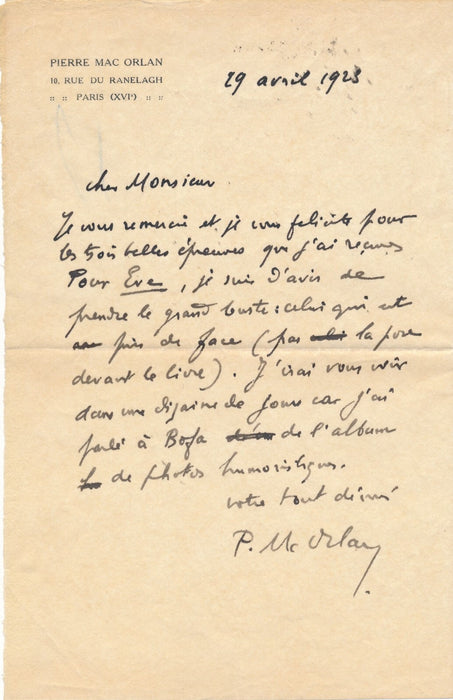 PIERRE MAC ORLAN
10, RUE DU RANELAGH
:: :: PARIS (XVIe) :: ::
29 avril 1923
cher Monsieur
Je vous remercie et je vous felicite pour
les trois belles épreuves que j'ai reçues
Pour Eve, je suis d'avis de
prendre le grand buste : celui qui est
pris de face (pas la pose
devant le livre). J'irai vous voir
dans une dizaine de jours car j'ai
parlé à Bofa de l'album
de photos humoristiques.
votre tout dévoué
P. Mc Orlan